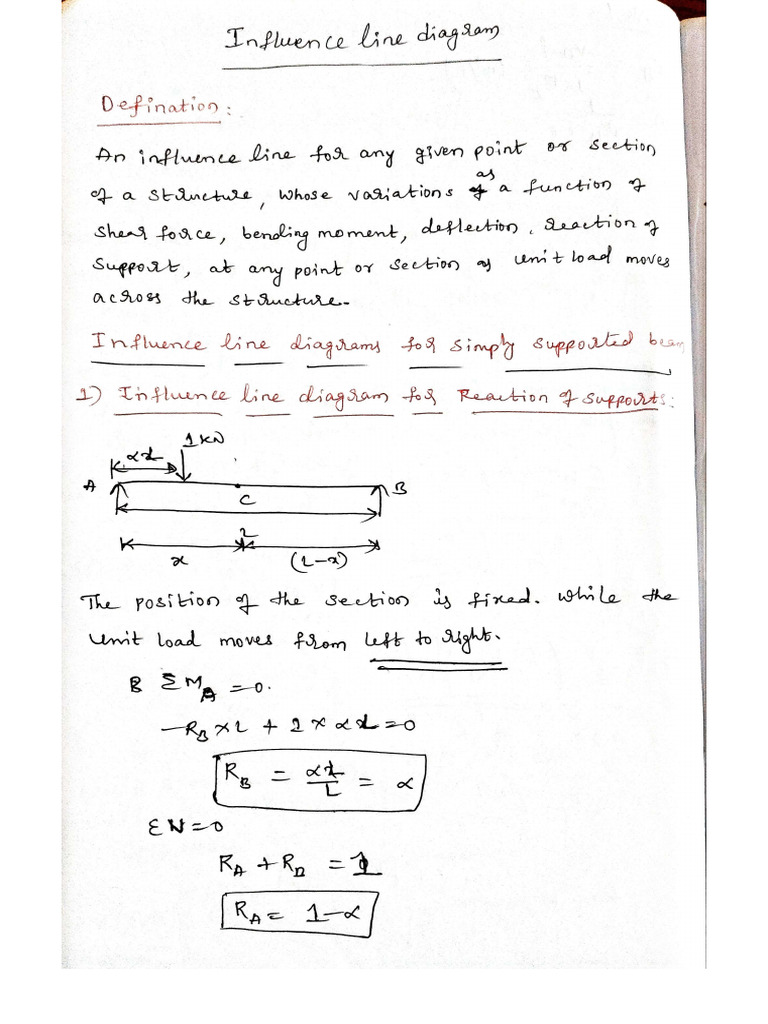 Influence line diagram
Defination:
An influence line for any given point or section
of a structure, whose variations as a function of
shear force, bending moment, deflection, reaction of
support, at any point or section as unit load moves
across the structure.
Influence line diagrams for simply supported beam
1) Influence line diagram for Reaction of supports:
1 KN
αl
A
B
C
L
x
(l-x)
The position of the section is fixed. While the
unit load moves from left to right.
ΣM_A = 0.
-R_B × l + 1 × αl = 0
R_B = αl/L = α
ΣV = 0
R_A + R_B = 1
R_A = 1-α